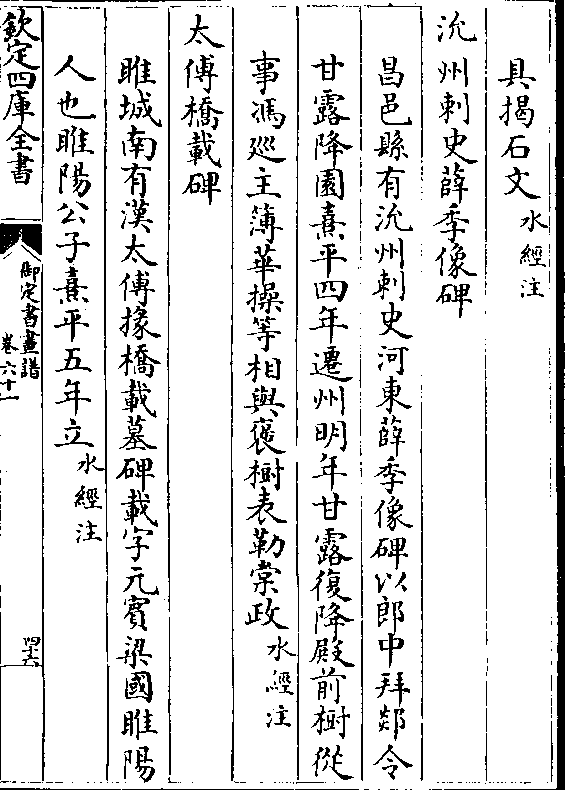 具揭石文水經注
沇州刺史薛季像碑
昌邑縣有沇州刺史河東薛季像碑以郎中拜郯令
甘露降園熹平四年遷州明年甘露復降殿前樹從
事馮巡主簿華操等相與褒樹表勒棠政水經注
太傅橋載碑
睢城南有漢太傅掾橋載墓碑載字元賓梁國睢陽
人也睢陽公子熹平五年立水經注
欽定四庫全書
御定書畫譜
卷六十一
四十六